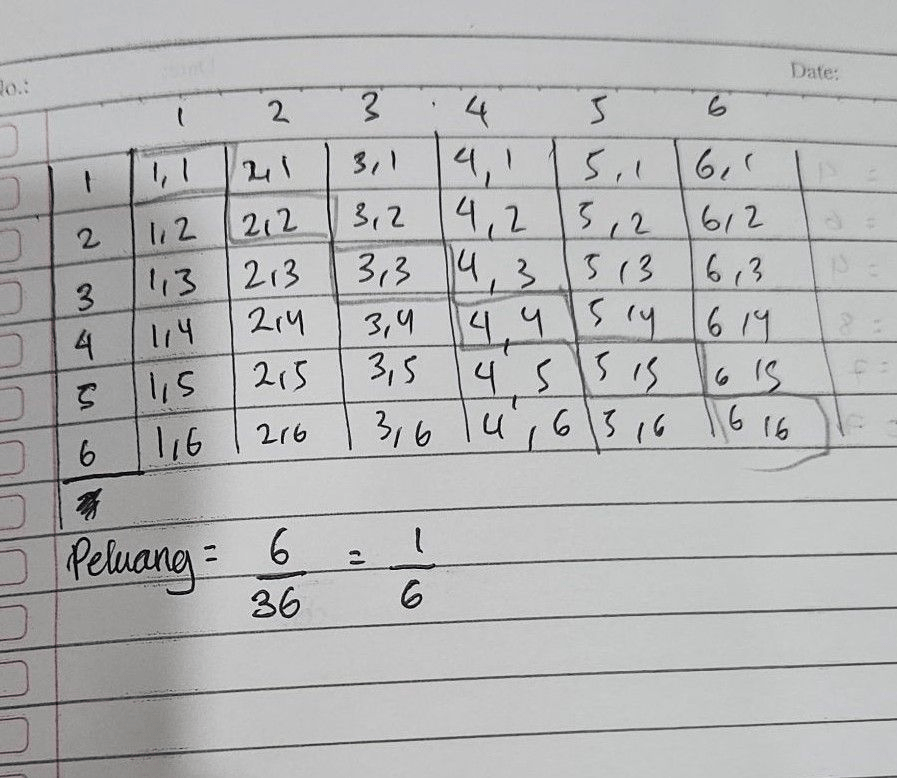 No.:
Date:
1 2 3 4 5 6
1 1,1 2,1 3,1 4,1 5,1 6,1
2 1,2 2,2 3,2 4,2 5,2 6,2
3 1,3 2,3 3,3 4,3 5,3 6,3
4 1,4 2,4 3,4 4,4 5,4 6,4
5 1,5 2,5 3,5 4,5 5,5 6,5
6 1,6 2,6 3,6 4,6 5,6 6,6
Peluang = 6/36 = 1/6